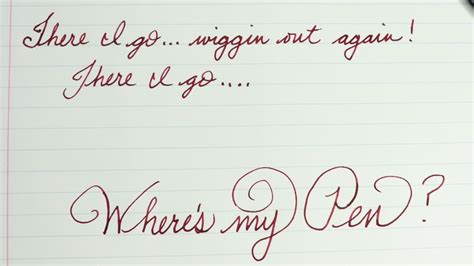 There I go... wiggin out again!
There I go....
Where's my Pen?